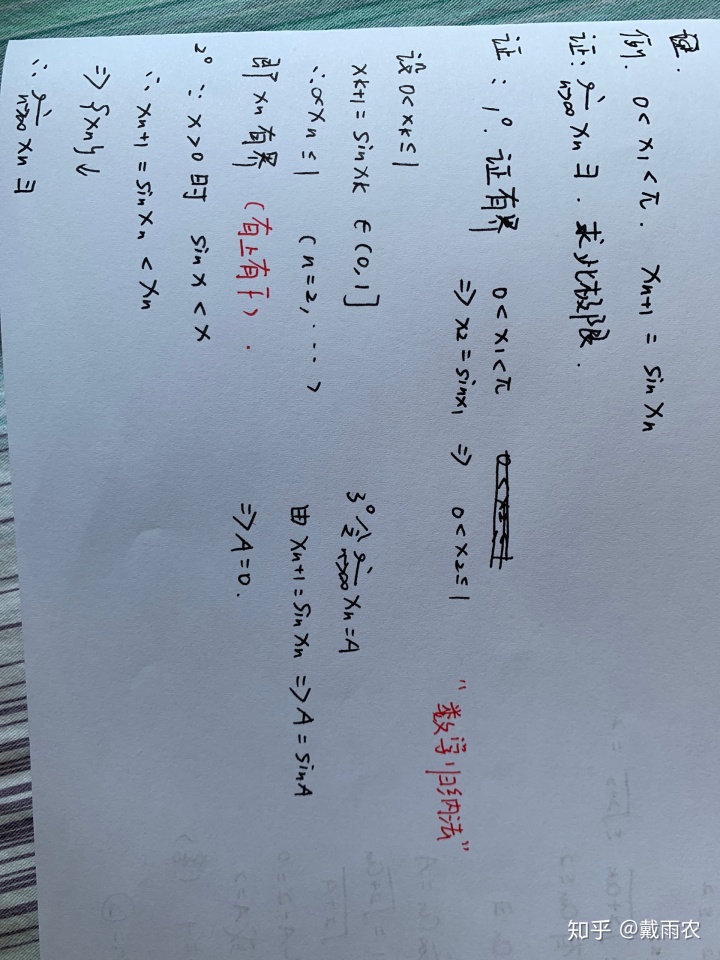 例. 0 < x₁ < π. xₙ₊₁ = sin xₙ
证: lim n→∞ xₙ ∃. 求此极限.
证: 1°. 证有界 0 < x₁ < π
⇒ x₂ = sinx₁ ⇒ 0 < x₂ ≤ 1
"数学归纳法"
设 0 < xₖ ≤ 1
xₖ₊₁ = sin xₖ ∈ (0,1]
∴ 0< xₙ ≤ 1 (n=2, ···)
即 xₙ 有界 (有上有下).
2° ∵ x>0时 sin x < x
∴ xₙ₊₁ = sin xₙ < xₙ
⇒ {xₙ}↓
∴ lim n→∞ xₙ ∃
3° 令 lim n→∞ xₙ = A
由 xₙ₊₁ = sin xₙ ⇒ A = sinA
⇒ A = 0.
知乎 @戴雨农